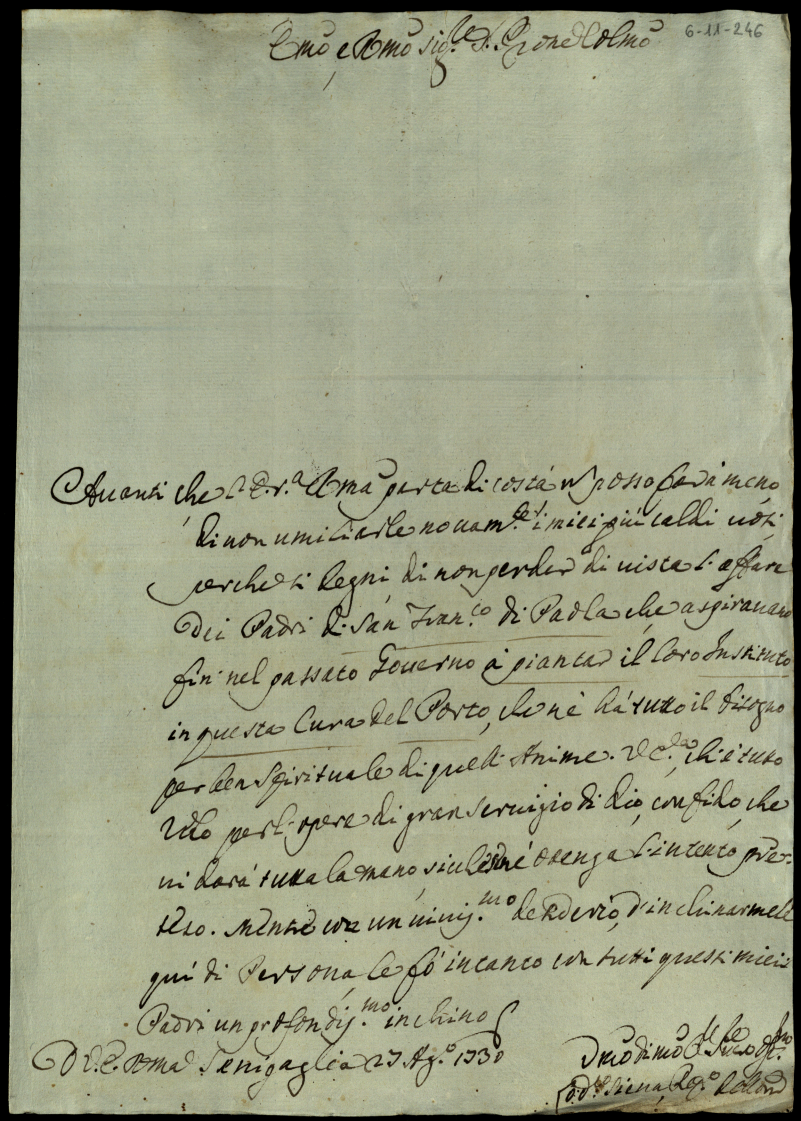 6-11-246
Emo e Rmo Sig.re P.rone Colmo
Avanti che l'E.V.a Rma parta di costà non posso far à meno
di non umiliarle novam.te i miei più caldi voti
perche si degni di non perder di vista l'affare
Dei Padri di San Fran.co di Paola che aspiravano
fin nel passato Governo à piantar il loro Instituto
in questa Cura del Porto, che nè hà tutto il bisogno
per ben Spirituale di quelle Anime. ch'è tutto
zelo per l'opere di gran servigio di dio, confido, che
vi darà tutta la mano, si ottenga l'intento pre-
teso. Mentre con un viviss.mo desiderio, d'inchinarmele
quì di Persona, le fò incanto con tutti questi miei
Padri un profondiss.mo inchino
D V.E. Rma Senigaglia 27 Ag.o 1730